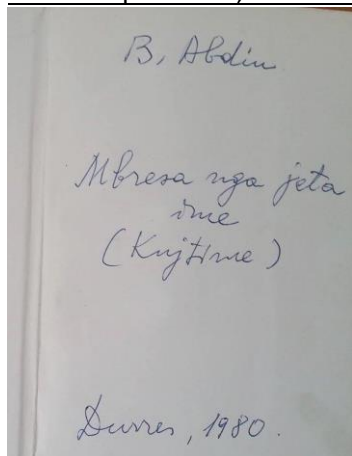 B, Abdin
Mbresa nga jeta
ime
(Kujtime)
Durres, 1980.